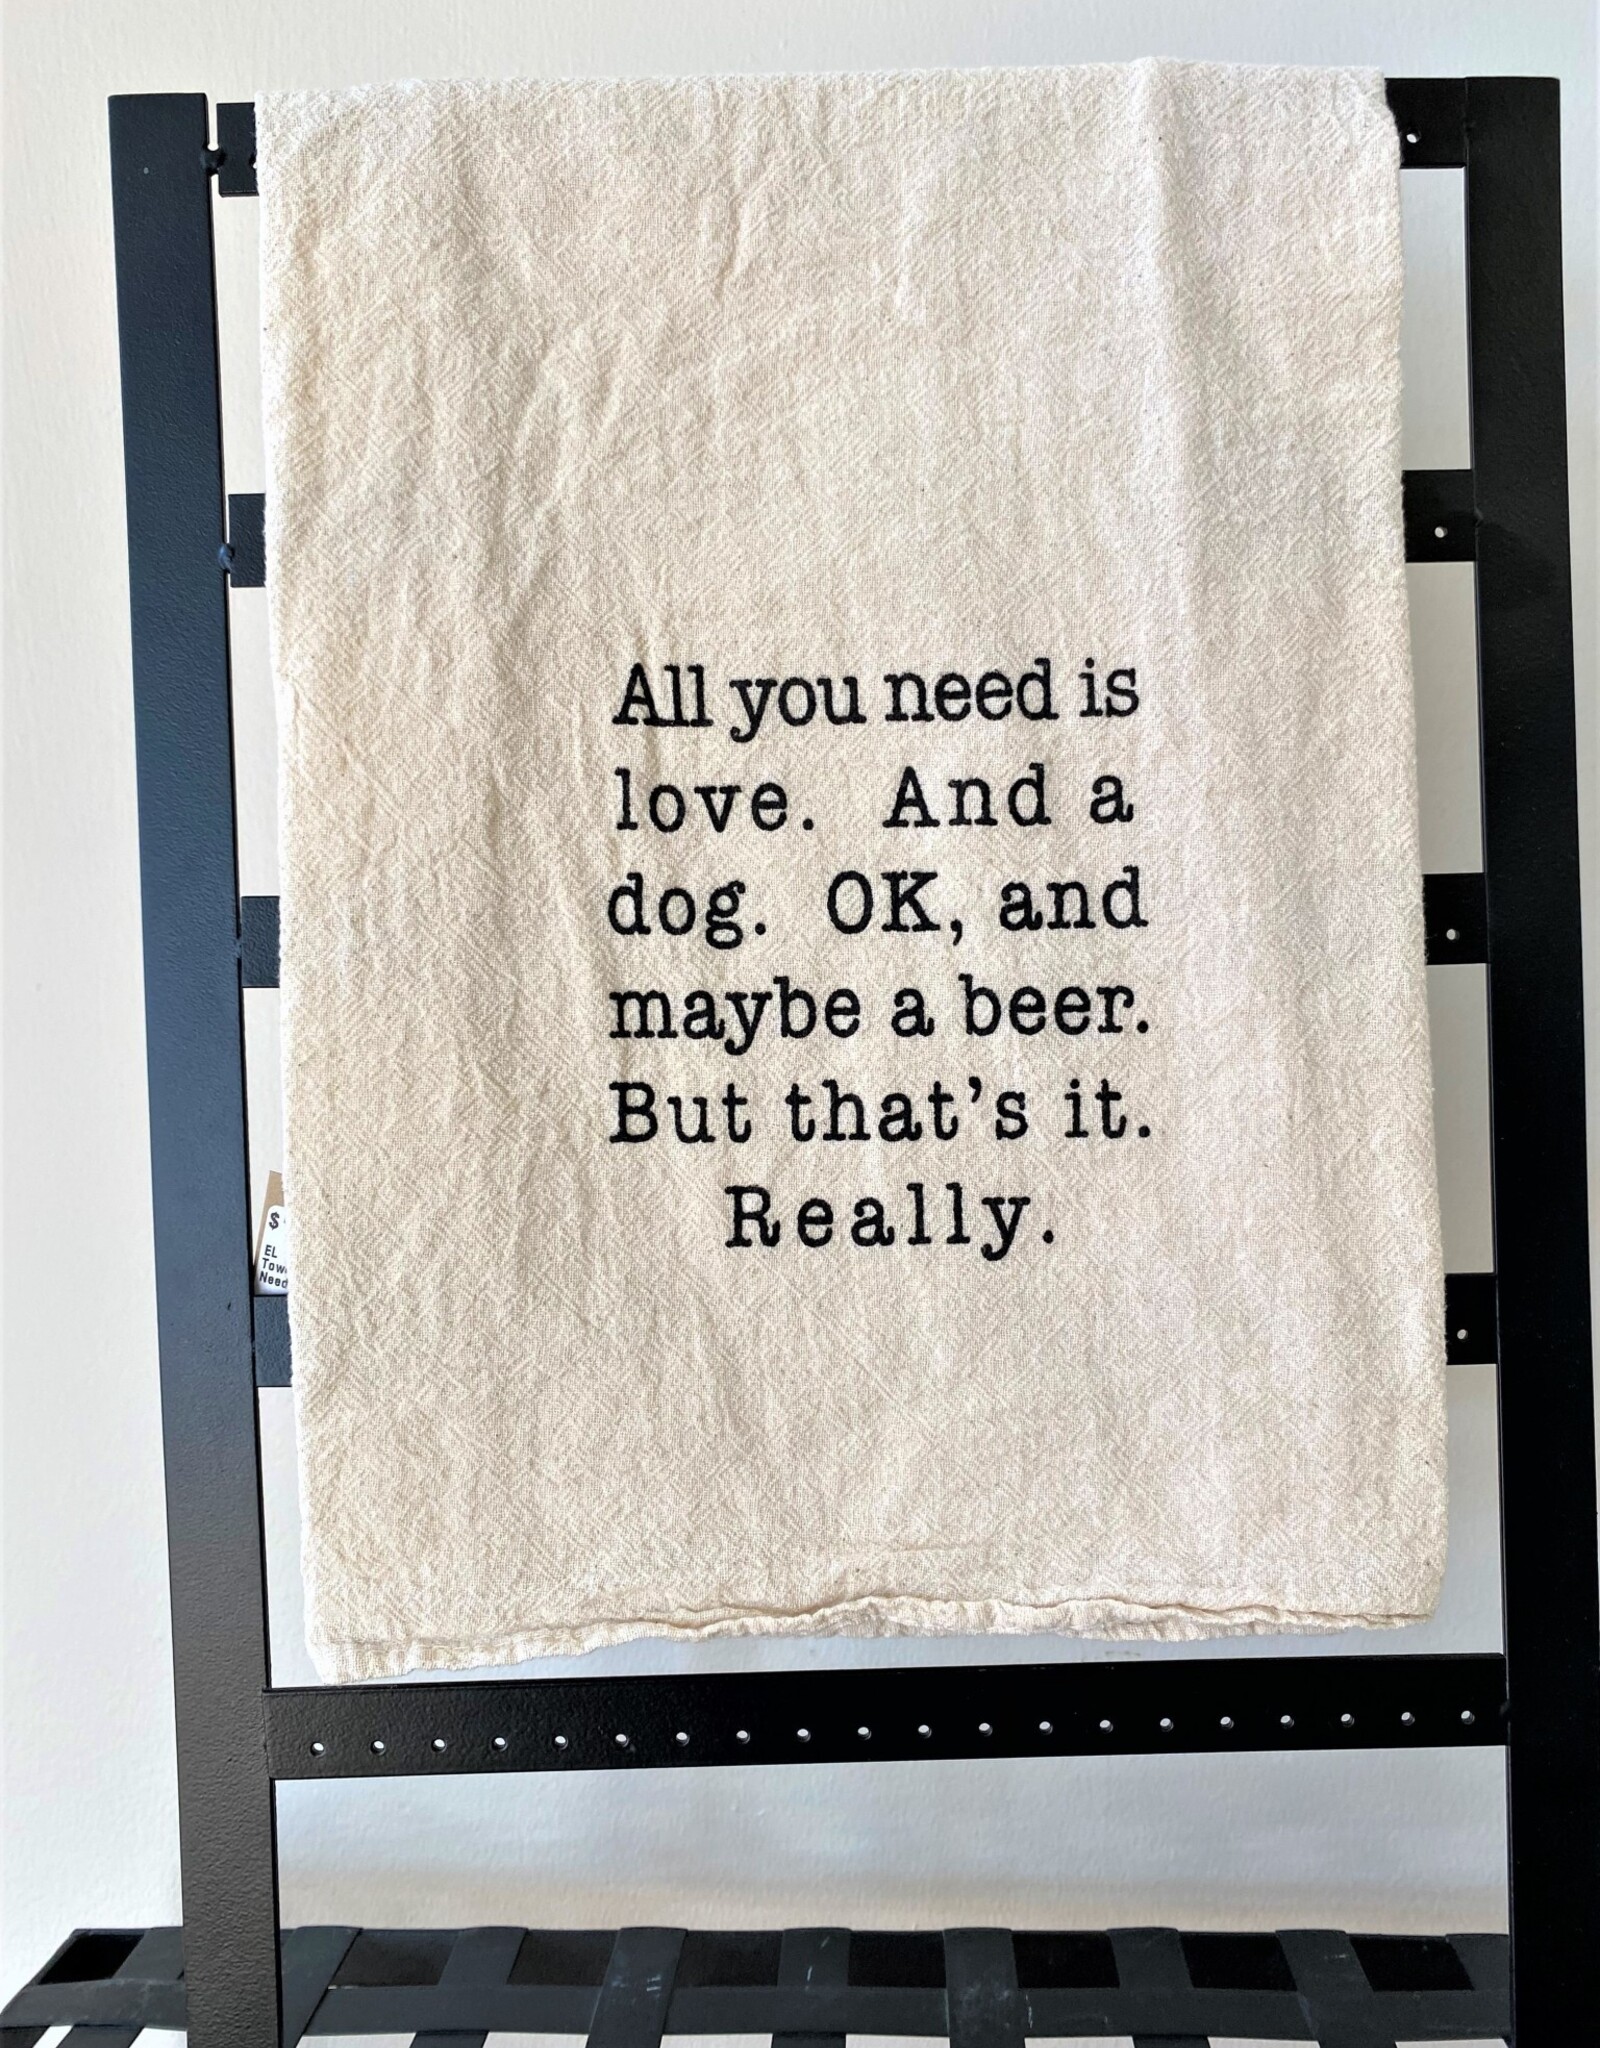 All you need is
love. And a
dog. OK, and
maybe a beer.
But that's it.
Really.
$
EL
Need